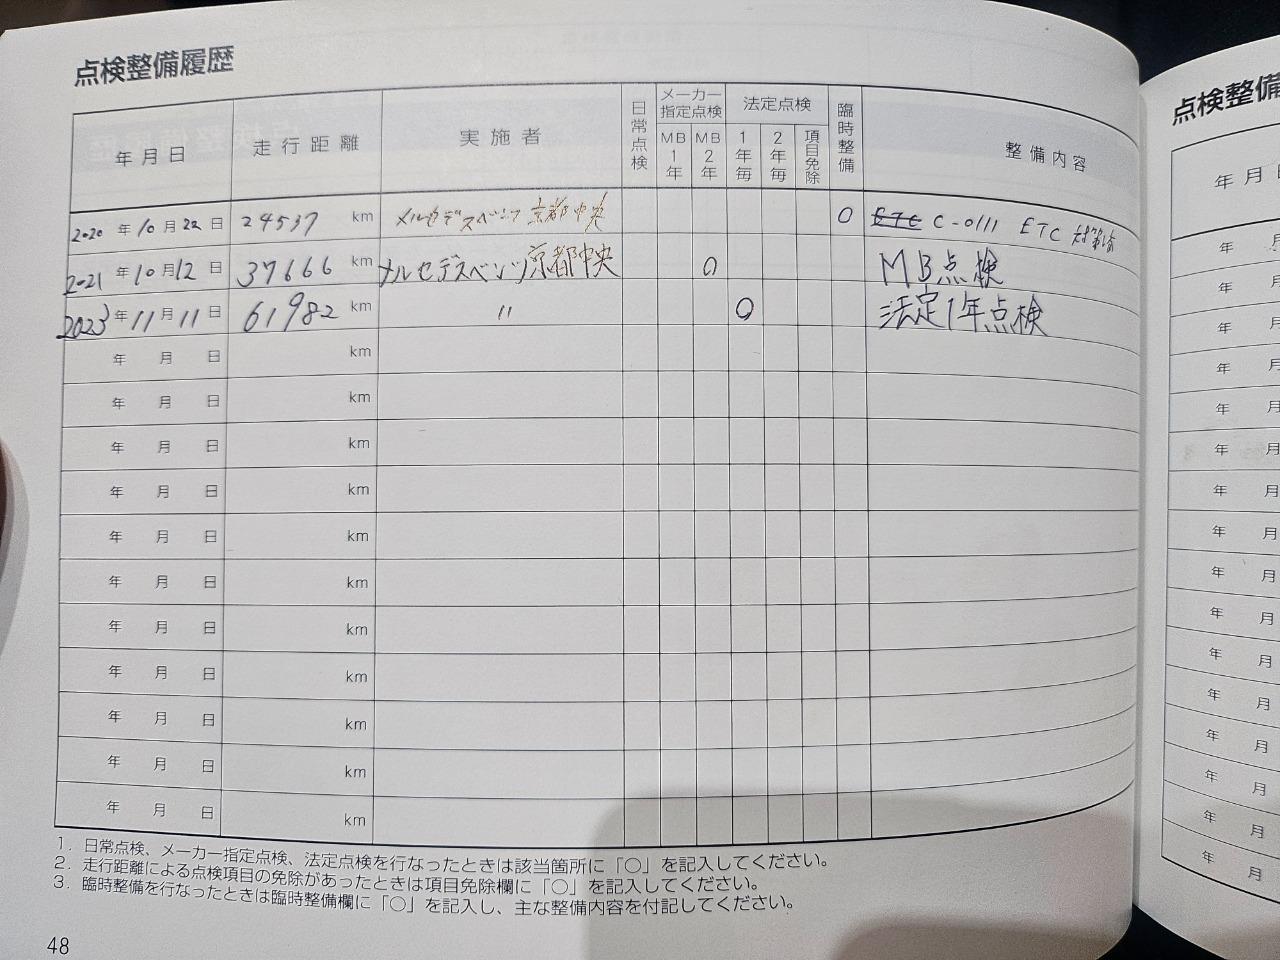 点検整備履歴
年月日 走行距離 実施者 日常点検 メーカー指定点検 MB1年 MB2年 法定点検 1年毎 2年毎 項目免除 臨時整備 整備内容
2020年10月22日 24537 km メルセデスベンツ京都中央 〇 ETC C-0111 ETC
2021年10月12日 37666 km メルセデスベンツ京都中央 〇 MB点検
2023年11月11日 61982 km 〃 〇 法定1年点検
年 月 日 km
年 月 日 km
年 月 日 km
年 月 日 km
年 月 日 km
年 月 日 km
年 月 日 km
年 月 日 km
年 月 日 km
年 月 日 km
年 月 日 km
1. 日常点検、メーカー指定点検、法定点検を行なったときは該当箇所に「〇」を記入してください。
2. 走行距離による点検項目の免除があったときは項目免除欄に「〇」を記入してください。
3. 臨時整備を行なったときは臨時整備欄に「〇」を記入し、主な整備内容を付記してください。
48
点検整備
年 月
年 月
年 月
年 月
年 月
年 月
年 月
年 月
年 月
年 月
年 月
年 月
年 月
年 月
年 月
年 月
年 月